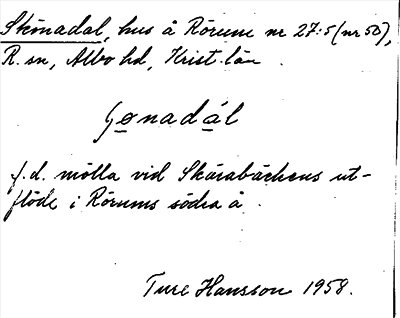 Skönadal, hus å Rörum nr 27:5 (nr 50),
R. sn, Albo hd, Krist. län.
f.d. mölla vid Skärabäckens ut-
flöde i Rörums södra å.
Ture Hansson 1958.